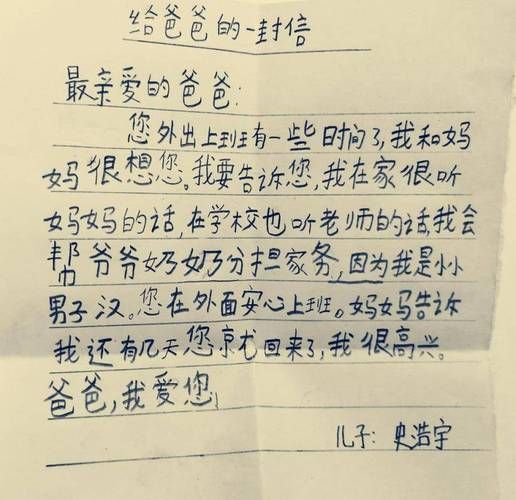 给爸爸的一封信
最亲爱的爸爸:
您外出上班有一些日时间了,我和妈
妈很想您。我要告诉您,我在家很听
妈妈的话,在学校也听老师的话,我会
帮爷爷奶奶分担家务,因为我是小小
男子汉。您在外面安心上班。妈妈告诉
我还有几天您就回来了,我很高兴。
爸爸,我爱您!
儿子:史浩宇